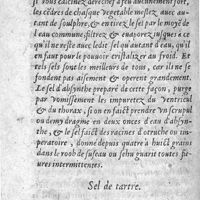 si vous calcinez derechef a feu aucunement fort,
les cēdres de chasque vegetable meslez auec au-
tant de soulphre, & en tirez le sel par le moyē de
l'eau commune: filtrez & euaporez iusques a ce
qu'il ne reste auec ledit sel qu'autant d'eau, qu'il
en faut pour le pouuoir cristalizer au froid. Et
tels sels sont les meilleurs de tous, car ils se
fondent aisement & operent grandement.
Le sel d'absynthe preparé de cette façon, purge
par vomissement les impuretez du ventricul
& du thorax, si on en faict prendre vn scrupul
ou demy dragme en deux onces d'eau d'absyn-
the, & le sel faict des racines d'ostruche ou im-
peratoire, donné depuis quatre à huict grains
dans le roob de suseau ou sehu guarit toutes fie-
ures intermittentes.
Sel de tartre.